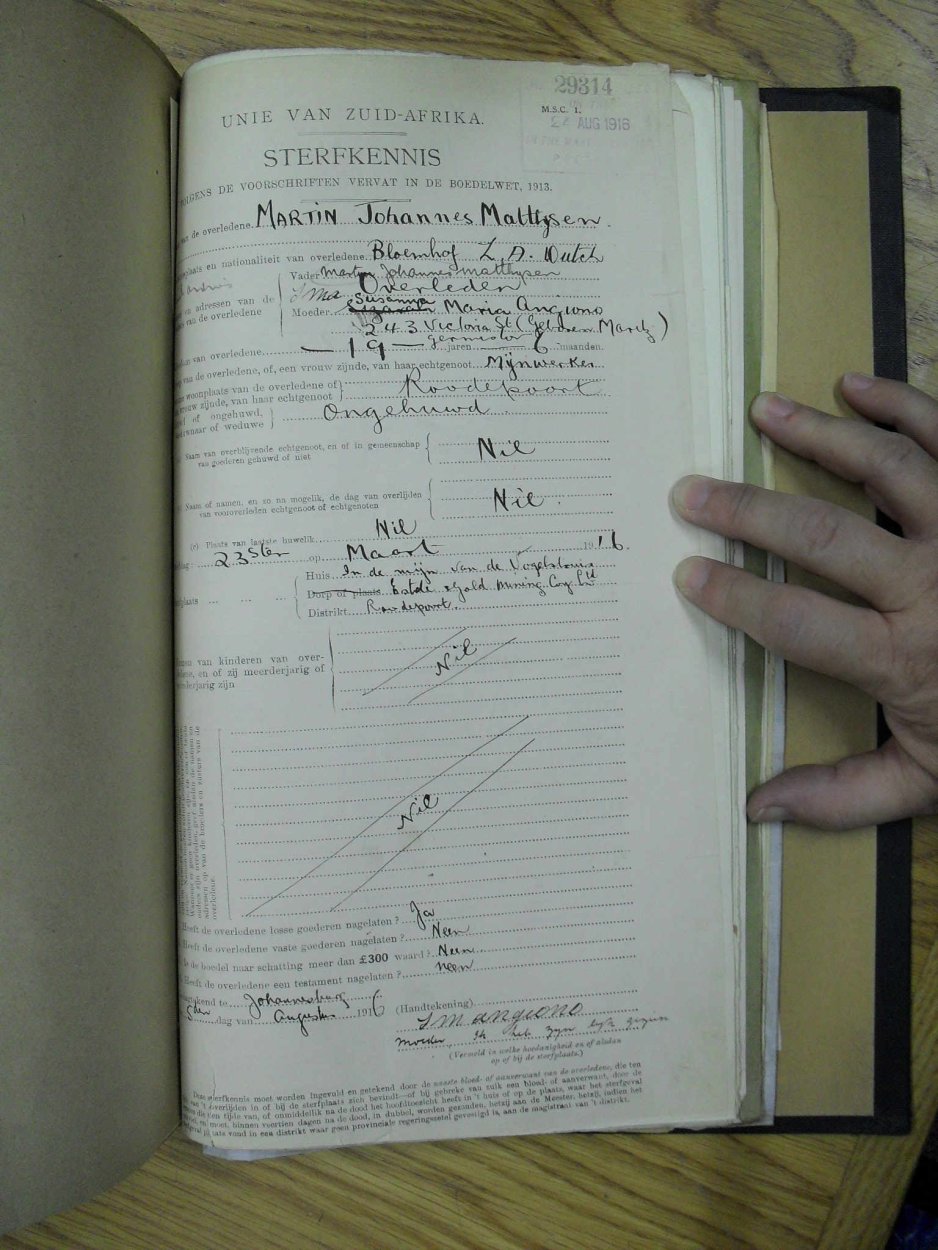 29314
M.S.C. 1.
24 AUG 1916
UNIE VAN ZUID-AFRIKA.
STERFKENNIS
VOLGENS DE VOORSCHRIFTEN VERVAT IN DE BOEDELWET, 1913.
van de overledene. MARTIN Johannes Matthysen.
en nationaliteit van overledene. Bloemhof Z. A. Dutch
Vader Martin Johannes Matthysen
en adressen van de Overleden
van de overledene Moeder. Susanna Maria Angiono
243 Victoria St (Geboren Maritz)
Germiston
van overledene. — 19 — jaren 6 maanden.
van de overledene, of, een vrouw zijnde, van haar echtgenoot. Mijnwerker
woonplaats van de overledene of
vrouw zijnde, van haar echtgenoot Roodepoort
of ongehuwd, Ongehuwd
of weduwe
Naam van overblijvende echtgenoot, en of in gemeenschap
van goederen gehuwd of niet Nil
Naam of namen, en zo na mogelik, de dag van overlijden
van vooroverleden echtgenoot of echtgenoten Nil.
(c) Plaats van laatste huwelik. Nil
23ster op Maart 1916.
Huis. In de mijn van de Vogelstruis
Dorp of plaats Estate & Gold Mining Coy Ltd
Distrikt Roodepoort.
van kinderen van over-
en of zij meerderjarig of Nil
zijn
Nil
Heeft de overledene losse goederen nagelaten? Ja
Heeft de overledene vaste goederen nagelaten? Neen
de boedel naar schatting meer dan £300 waard? Neen
Heeft de overledene een testament nagelaten? neen
te Johannesburg
5den dag van Augustus 1916
(Handtekening) S M angiono
Moeder Ik heb zyn lyk gezien
(Vermeld in welke hoedanigheid en of aldan
op of bij de sterfplaats.)
Deze sterfkennis moet worden ingevuld en getekend door de naaste bloed- of aanverwant van de overledene, die ten
van 't overlijden in of bij de sterfplaats zich bevindt—of bij gebreke van zulk een bloed- of aanverwant, door de
die ten tijde van, of onmiddelik na de dood het hoofdtoezicht heeft in 't huis of op de plaats, waar het sterfgeval
en moet, binnen veertien dagen na de dood, in dubbel, worden gezonden, hetzij aan de Meester, hetzij, indien het
plaats vond in een distrikt waar geen provinciale regeringszetel gevestigd is, aan de magistraat van 't distrikt.